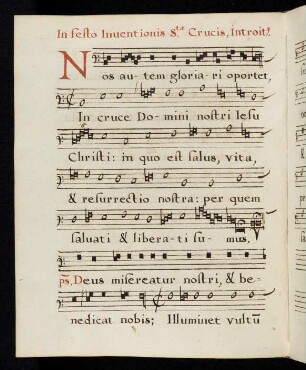 In festo Inuentionis S.tæ Crucis, Introit.
Nos au-tem gloria-ri oportet,
In cruce Do-mini nostri Iesu
Christi: in quo est salus, vita,
& resurrectio nostra: per quem
saluati & libera-ti su-mus.
ps. Deus misereatur nostri, & be-
nedicat nobis; Illuminet vultū